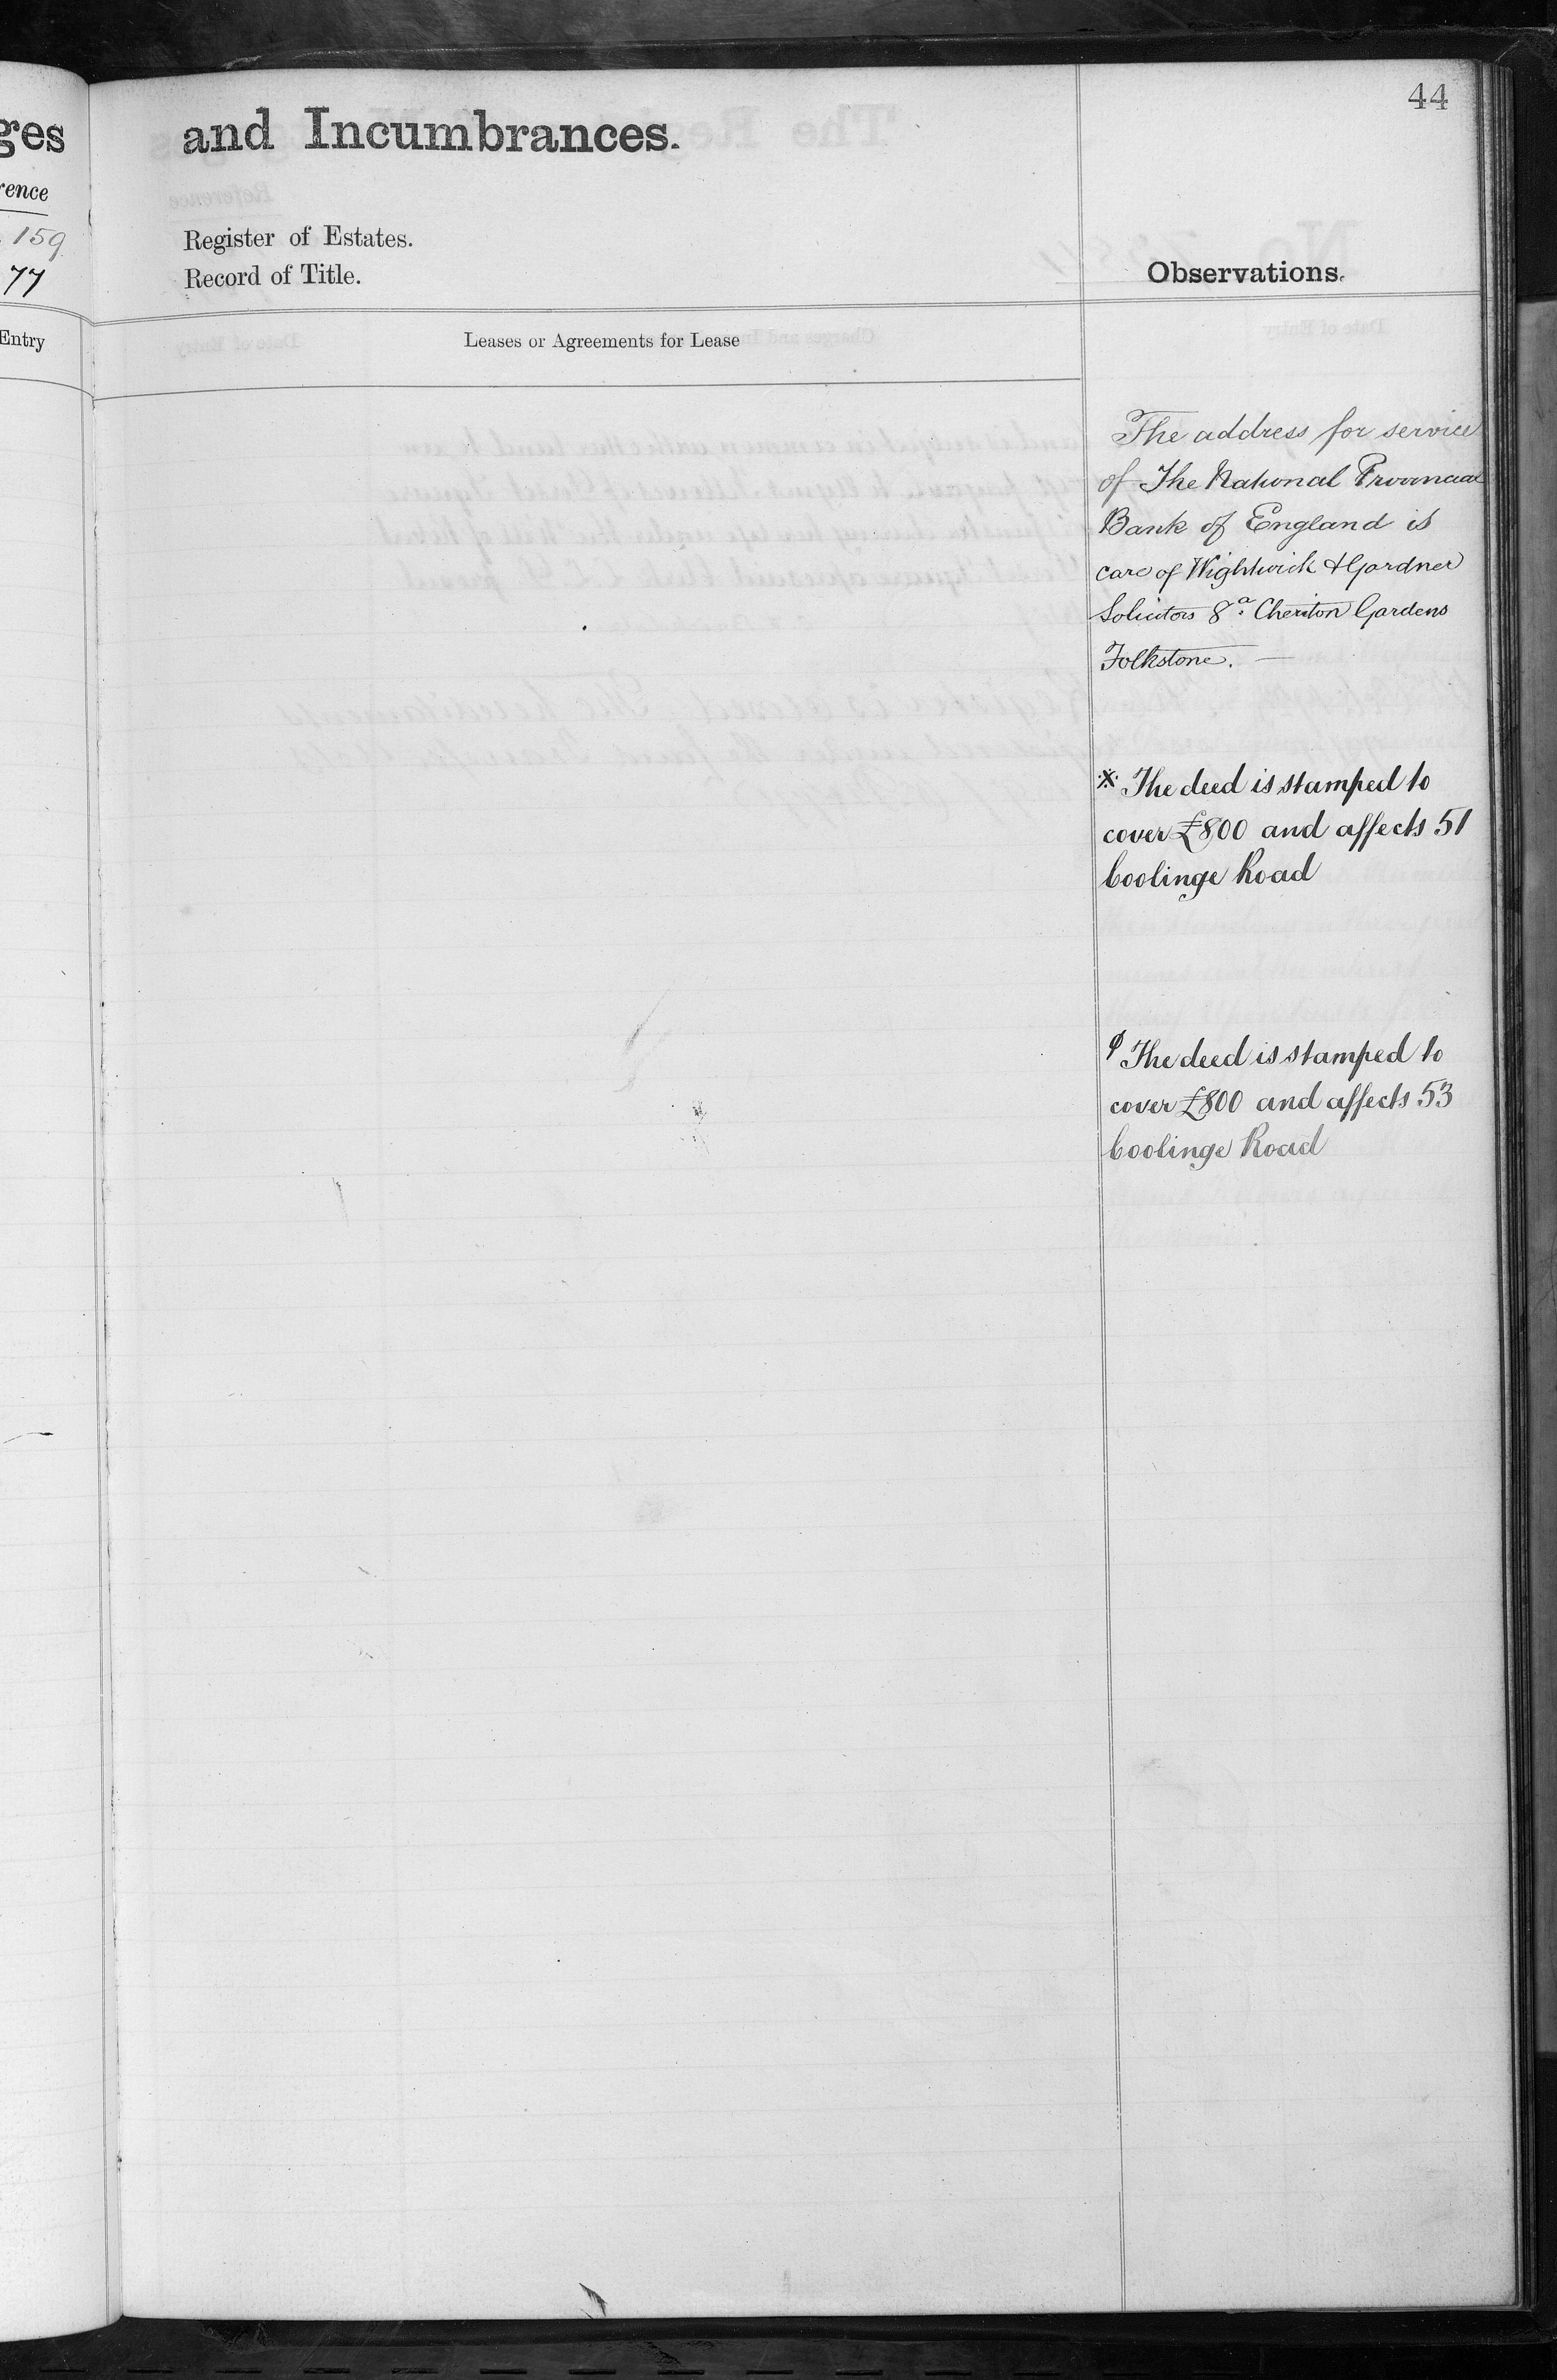 44
ges
and Incumbrances.
rence
159
Register of Estates.
77
Record of Title.
Observations.
Entry
Leases or Agreements for Lease
The address for service
of The National Provincial
Bank of England is
care of Wightwick & Gardner
Solicitors 8a. Cheriton Gardens
Folkstone. —
※ The deed is stamped to
cover £800 and affects 51
Coolinge Road
φ The deed is stamped to
cover £800 and affects 53
Coolinge Road